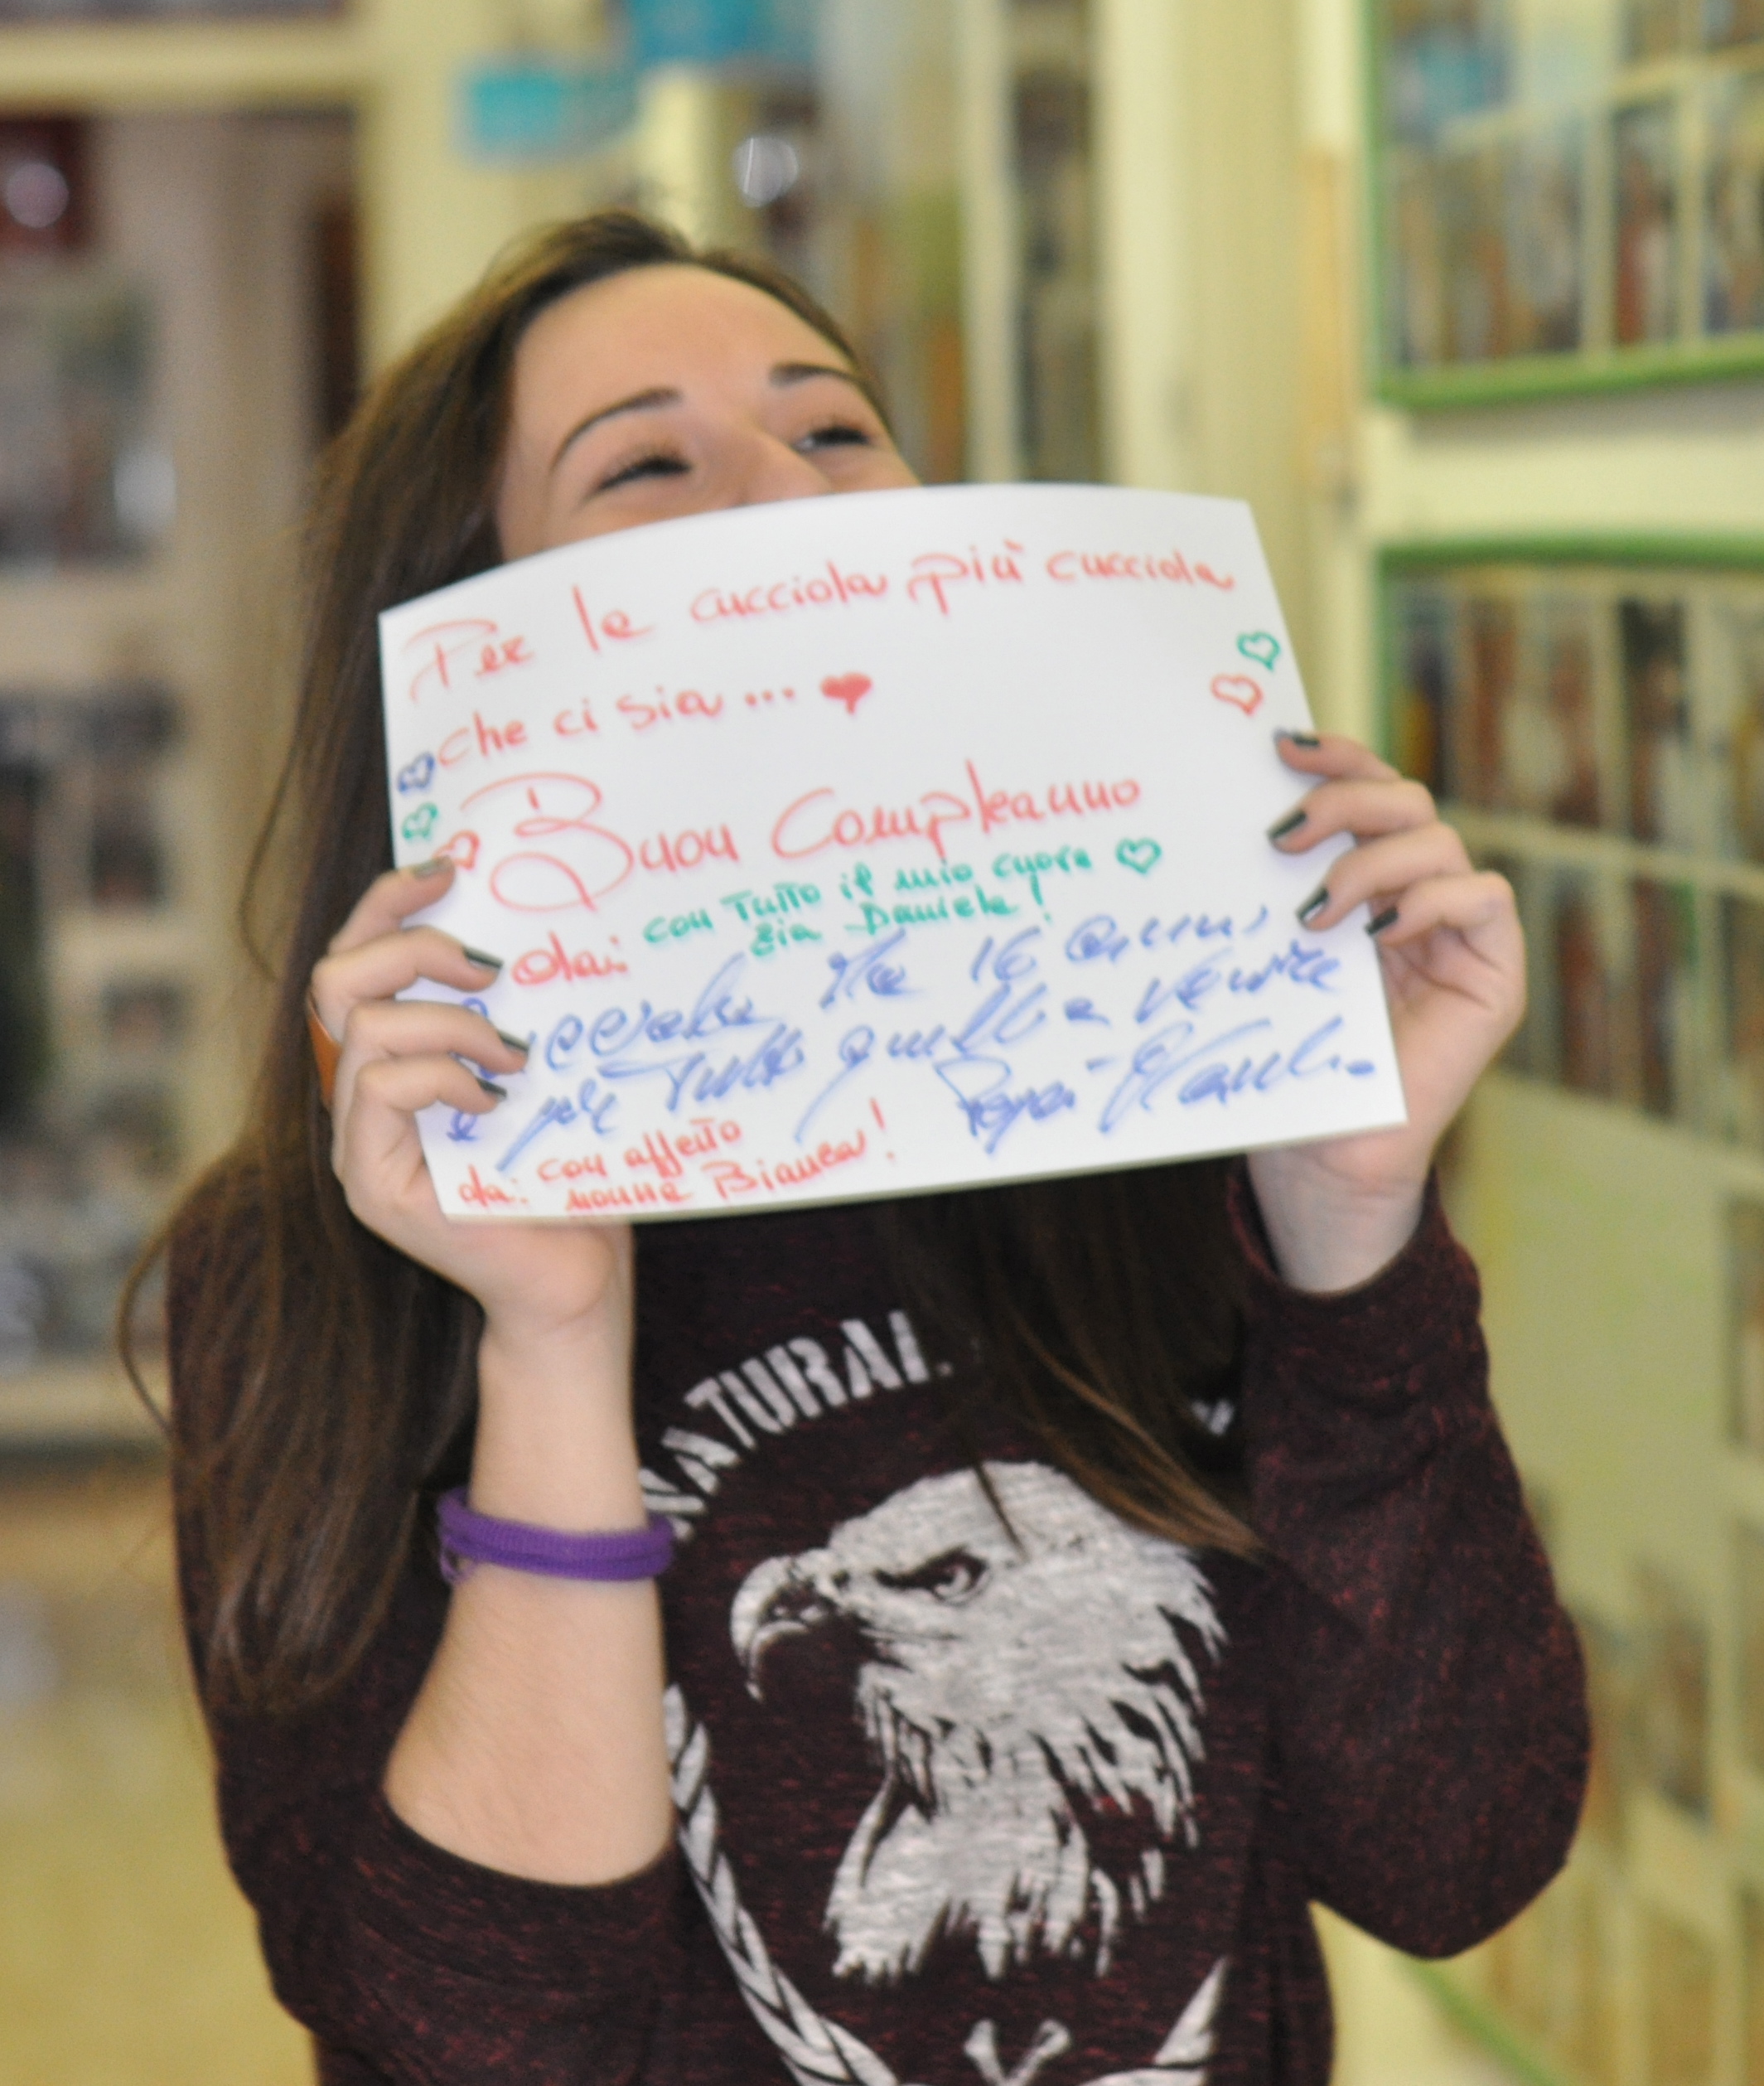 Per la cucciola più cucciola
che ci sia...
Buon Compleanno
da: con tutto il mio cuore
zia Daniela!
16 anni
e per tutti quelli a venire
Papà
da: con affetto
nonna Bianca!
NATURAL